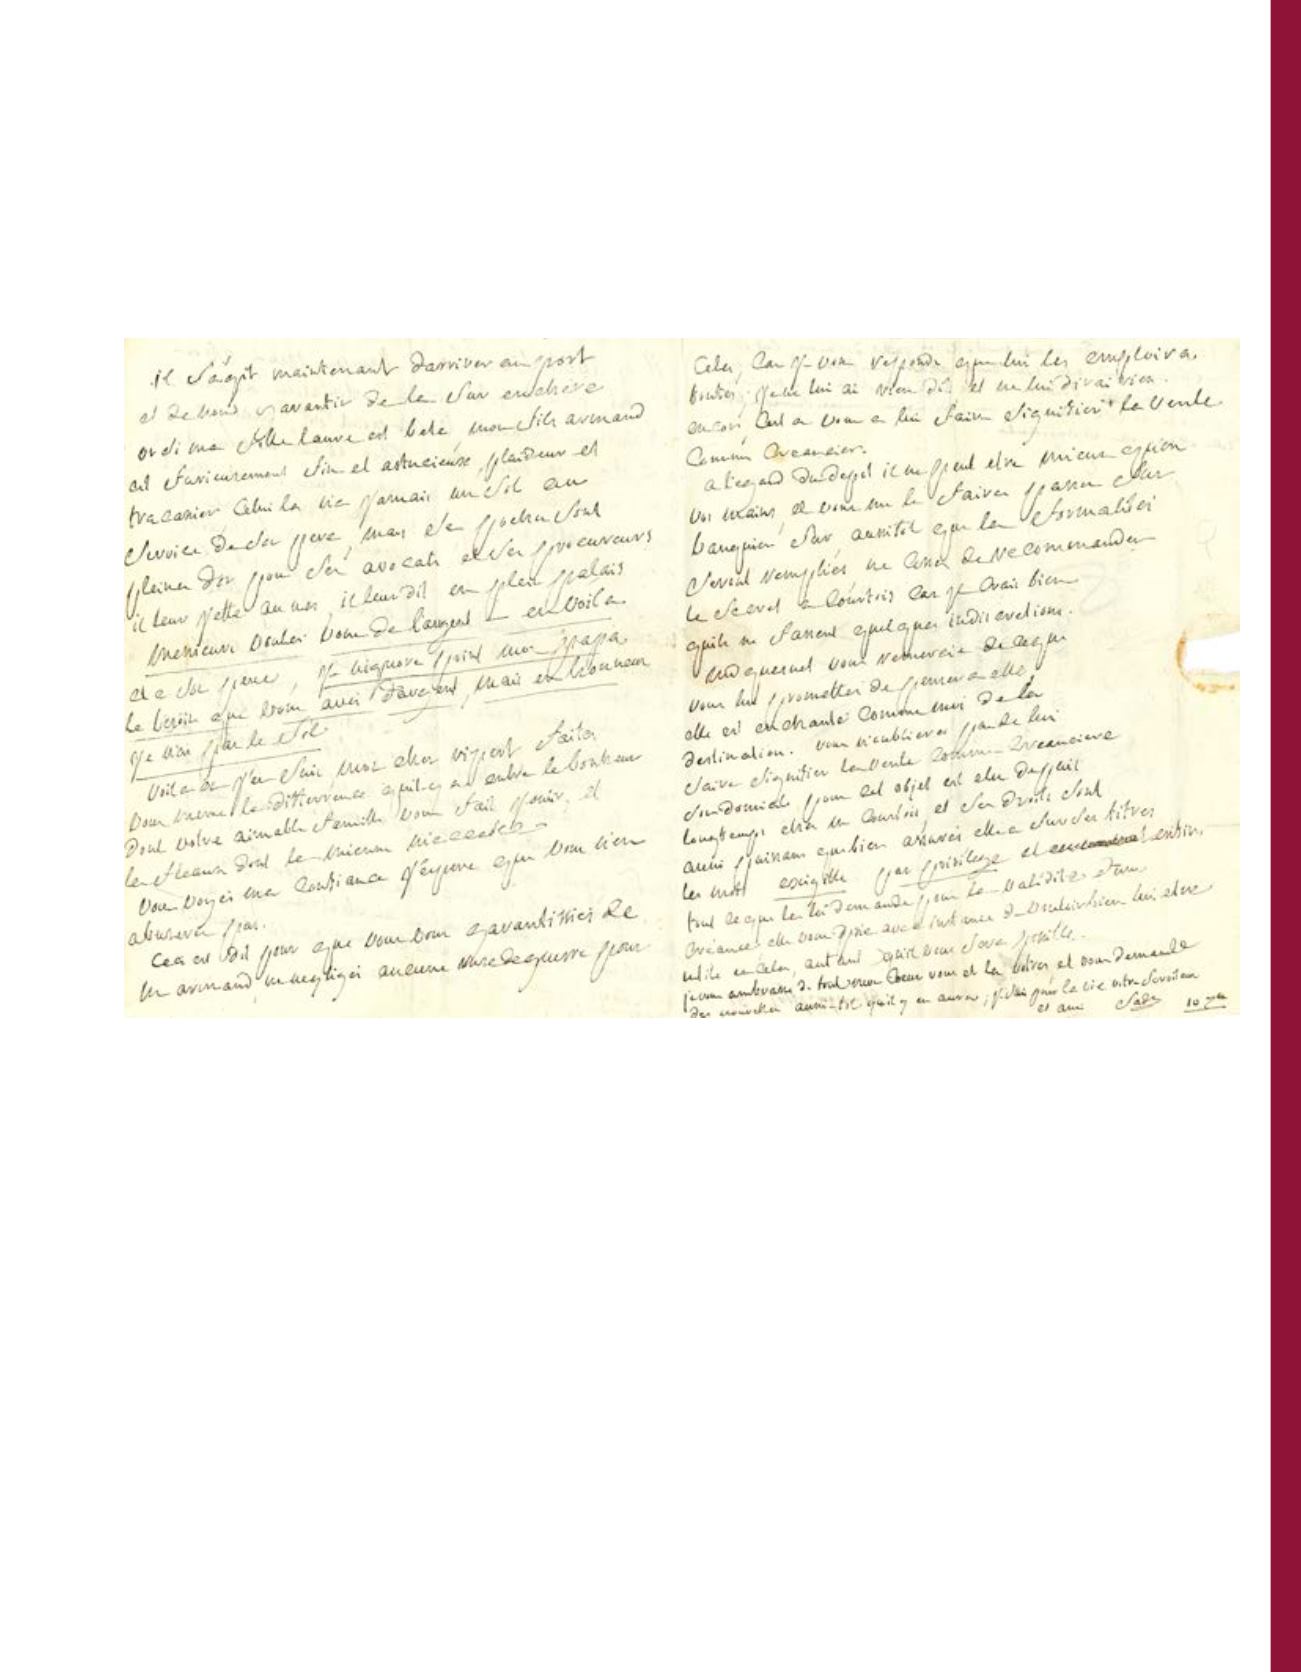 il s'agit maintenant d'arriver au port
et de vous garantir de la sur enchere
or si ma fille laure est bete, mon fils armand
est furieusement fin et astucieux, plaideur et
tracassier celui la n'a jamais un sol au
service de son pere, mais ses poches sont
pleines d'or pour ses avocats et ses procureurs
il leur jette au nes, il leur dit en plein palais
messieurs voules vous de l'argent – en voila
et a son pere, je n'ignore point mon papa
le besoin que vous avés d'argent, mais en honneur
je n'ai pas le sol
voila ou j'en suis mon cher
vous meme la difference qu'il y a entre le bonheur
dont votre aimable famille vous fait jouir, et
les fleaux dont la mienne
vous voyés ma confiance j'espere que vous n'en
abuserés pas.
Ceci est dit pour que vous vous garantissiés de
m armand, ne negligés aucune ruse de guerre pour
Cela, Car je vous responds que lui les emploira
toutes; je ne lui ai rien dit et ne lui dirai rien
encore C'est a vous a lui faire signifier la vente
Comme Creancier.
a l'egard du depot il ne peut etre mieux qu'en
vos mains, et vous me le faires passer sur
banquier sur aussitot que les formalités
seront remplies ne Cessés de recommander
le secret a Courtois Car je Crais bien
qu'ils ne fassent quelques indiscretions.
md quesnet vous remercie de ce que
vous lui promettés de penser a elle
elle est enchantée Comme moi de la
destination. vous n'oublieres pas de lui
faire signifier la vente Comme Creanciere
son domicile pour cet objet est elu depuis
longtemps chés m Courtois et ses droits sont
aussi puissans que bien assurés elle a sur ses titres
les mots exigible par privilege et enfin
tout ce que la loi demande pour la validité d'une
Creance elle vous prie avec instance de vouloir bien lui etre
utile en Cela, autant qu'il vous sera possible.
je vous embrasse de tout mon Coeur vous et les votres et vous demande
des nouvelles aussi-tot qu'il y en aura; je suis pour la vie votre serviteur
et ami Sade 10 7bre